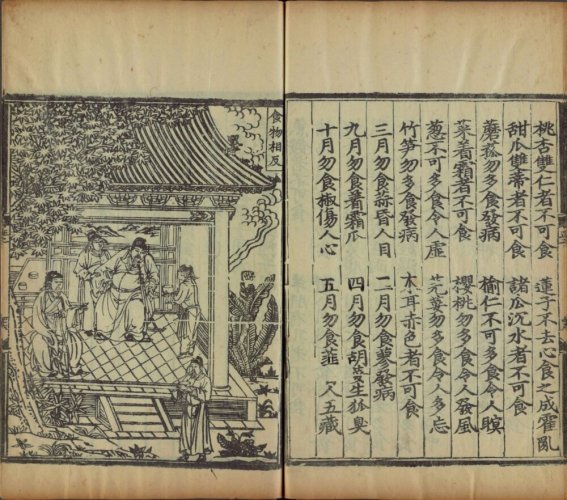 桃杏雙仁者不可食 蓮子不去心食之成霍亂
甜瓜雙蒂者不可食 諸瓜沉水者不可食
蘑菰勿多食發病 榆仁不可多食令人瞑
菜着霜者不可食 櫻桃勿多食令人發風
葱不可多食令人虛 芫荽勿多食令人多忘
竹笋勿多食發病 木耳赤色者不可食
三月勿食蒜昏人目 二月勿食蓼發病
九月勿食着霜瓜 四月勿食胡荽生狐臭
十月勿食椒傷人心 五月勿食韭 人五藏
食物相反